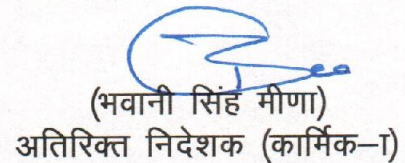 (भवानी सिंह मीणा)
अतिरिक्त निदेशक (कार्मिक–I)